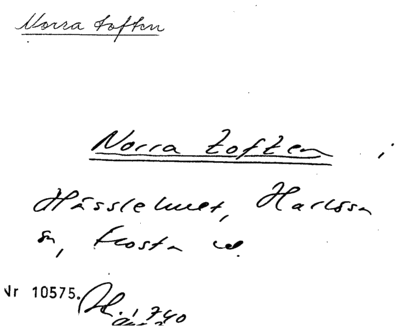 Norra toften
Norra toften i
Hässlehult, Harlösa
sn, Frosta hd.
Nr 10575.